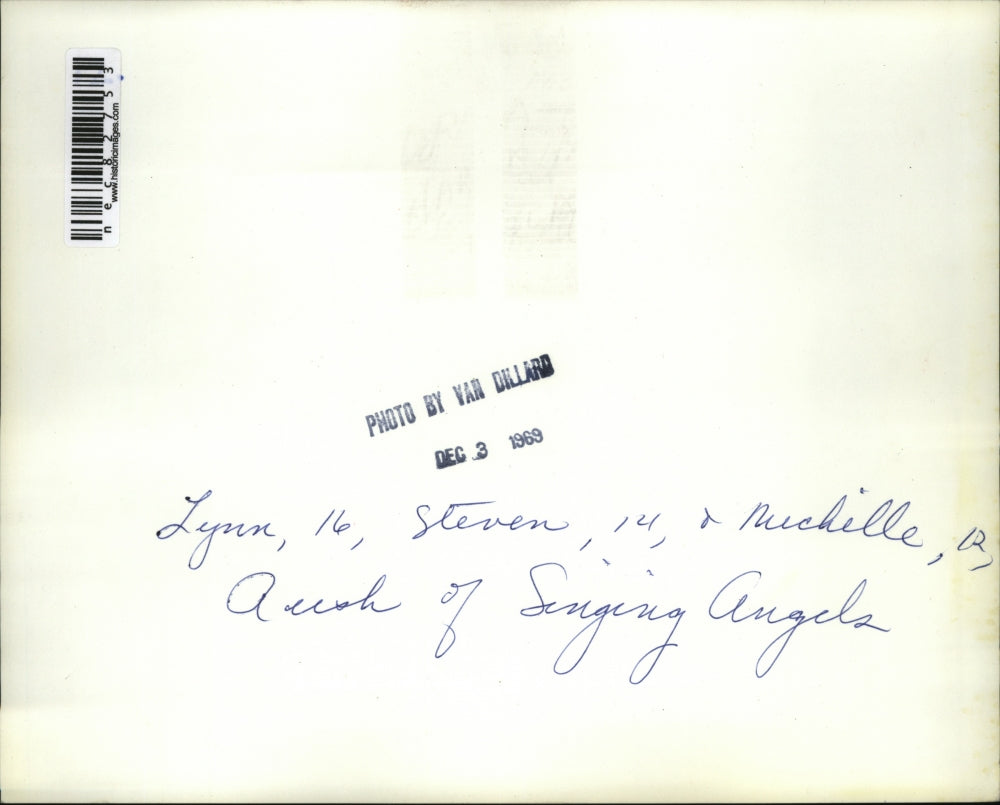 nec82753
www.historicimages.com
PHOTO BY VAN DILLARD
DEC 3 1969
Lynn, 16, Steven, 14, & Michelle, 12,
of Singing Angels